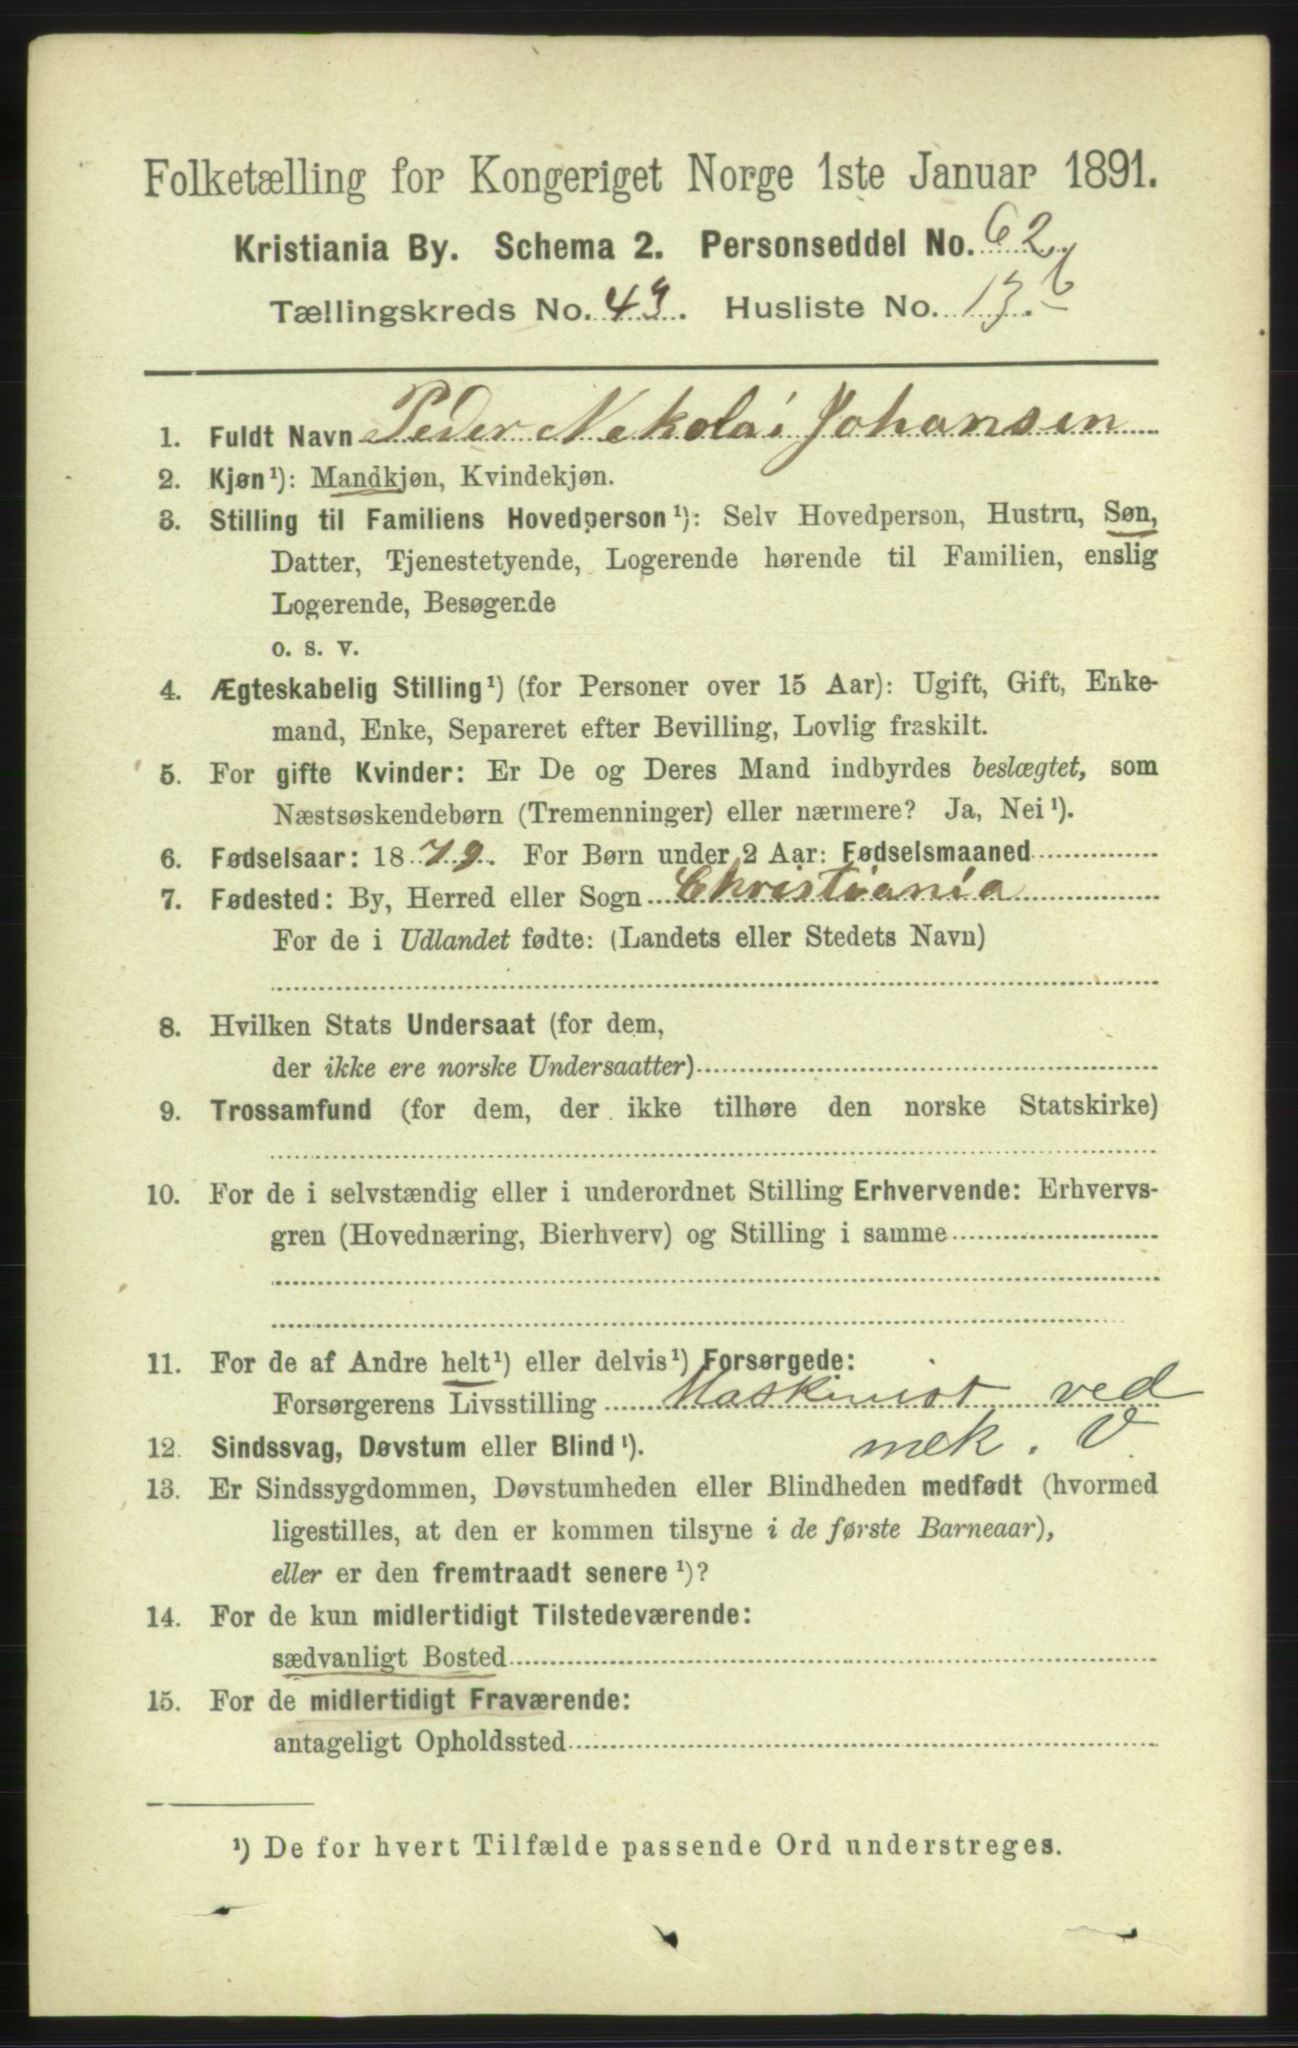 Folketælling for Kongeriget Norge 1ste Januar 1891.
Kristiania By. Schema 2. Personseddel No. 62
Tællingskreds No. 43. Husliste No. 13. b
1. Fuldt Navn Peder Nekolai Johansen
2. Kjøn¹): Mandkjøn, Kvindekjøn.
3. Stilling til Familiens Hovedperson¹): Selv Hovedperson, Hustru, Søn,
Datter, Tjenestetyende, Logerende hørende til Familien, enslig
Logerende, Besøgende
o. s. v.
4. Ægteskabelig Stilling¹) (for Personer over 15 Aar): Ugift, Gift, Enke-
mand, Enke, Separeret efter Bevilling, Lovlig fraskilt.
5. For gifte Kvinder: Er De og Deres Mand indbyrdes beslægtet, som
Næstsøskendebørn (Tremenninger) eller nærmere? Ja, Nei¹).
6. Fødselsaar: 1879. For Børn under 2 Aar: Fødselsmaaned
7. Fødested: By, Herred eller Sogn Christiania
For de i Udlandet fødte: (Landets eller Stedets Navn)
8. Hvilken Stats Undersaat (for dem,
der ikke ere norske Undersaatter)
9. Trossamfund (for dem, der ikke tilhøre den norske Statskirke)
10. For de i selvstændig eller i underordnet Stilling Erhvervende: Erhvervs-
gren (Hovednæring, Bierhverv) og Stilling i samme
11. For de af Andre helt¹) eller delvis¹) Forsørgede:
Forsørgerens Livsstilling Maskinist ved
mek. V
12. Sindssvag, Døvstum eller Blind¹).
13. Er Sindssygdommen, Døvstumheden eller Blindheden medfødt (hvormed
ligestilles, at den er kommen tilsyne i de første Barneaar),
eller er den fremtraadt senere¹)?
14. For de kun midlertidigt Tilstedeværende:
sædvanligt Bosted
15. For de midlertidigt Fraværende:
antageligt Opholdssted
¹) De for hvert Tilfælde passende Ord understreges.